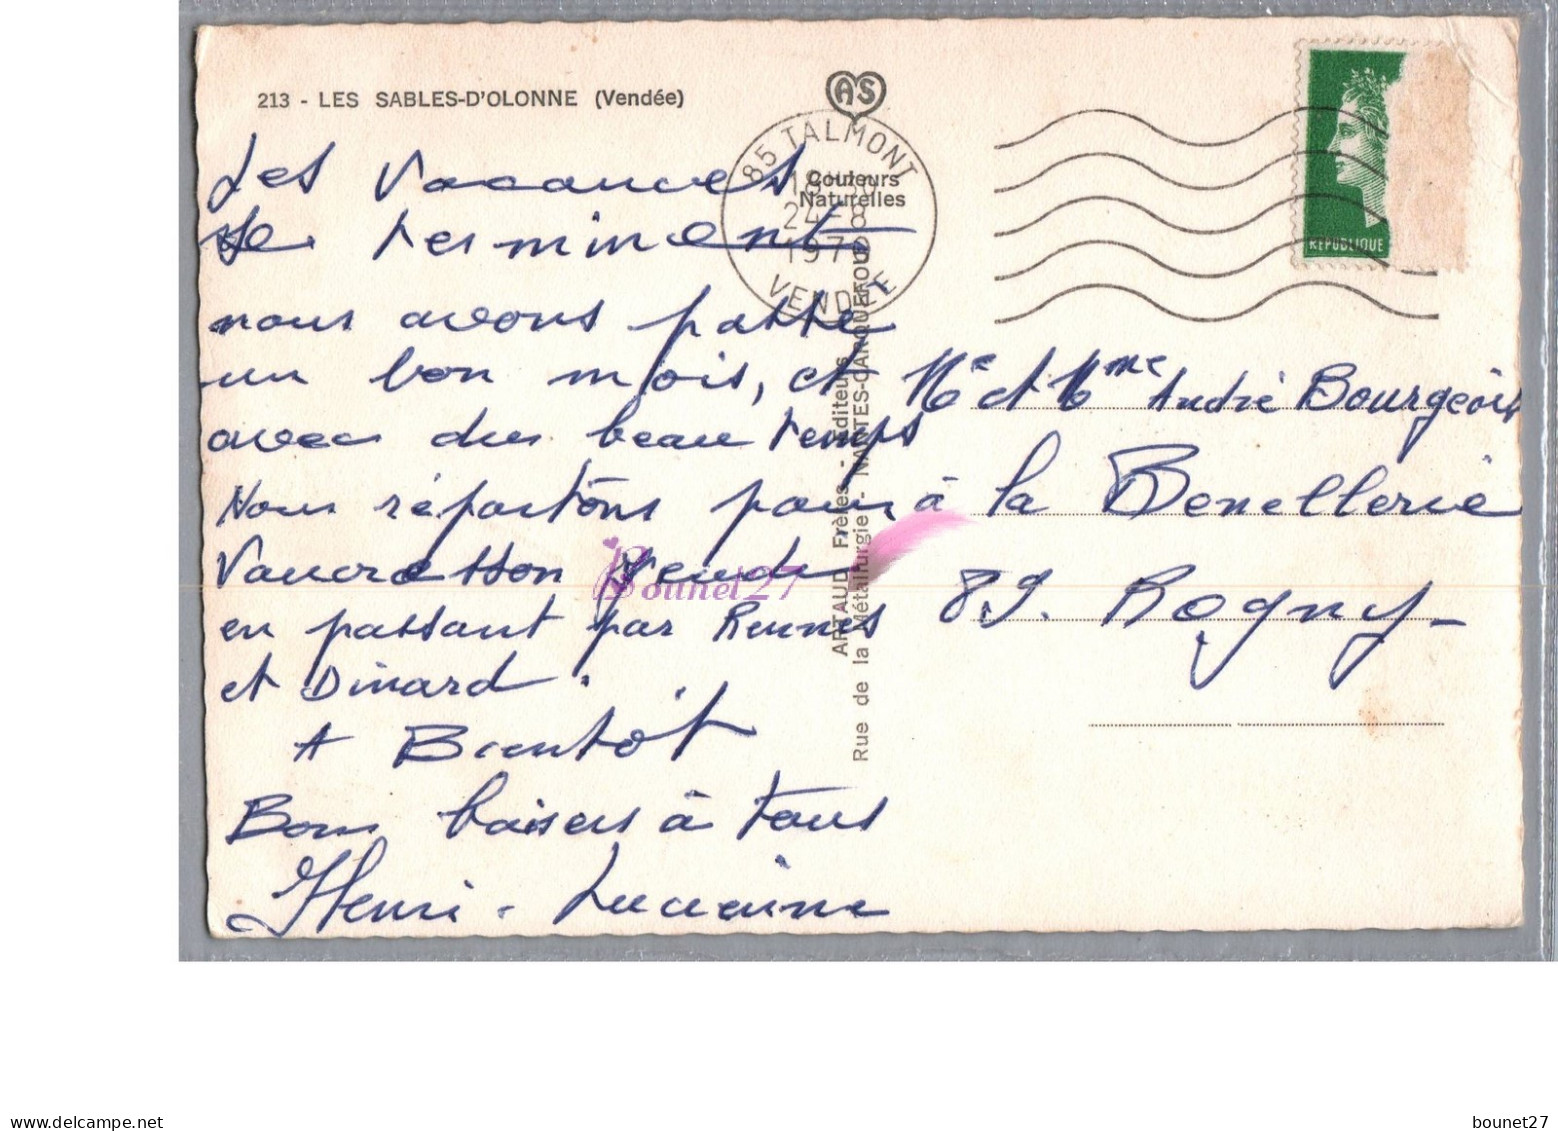 213 - LES SABLES-D'OLONNE (Vendée)
AS
Couleurs
Naturelles
85 TALMONT
24-8
VENDÉE
REPUBLIQUE
Les Vacances
se terminent
nous avons passé
un bon mois, et
avec du beau temps
Nous répartons pour
Vaucresson
en passant par Rennes
et Dinard.
A Bientôt
Bons baisers à tous
Henri - Lucienne
ARTAUD Frères - Éditeurs
Rue de la Métallurgie - NANTES-CARQUEFOU
Mr et Mme André Bourgeois
à la Benellerie
89. Rogny
Bounet27
bounet27